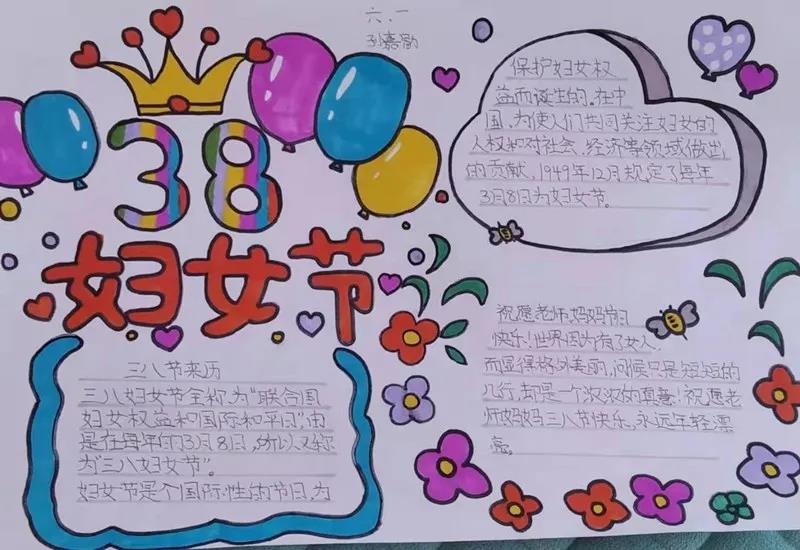 六.一
孙嘉
38
妇女节
三八节来历
三八妇女节全称为“联合国
妇女权益和国际和平日”,由
是在每年的3月8日,所以又称
为“三八妇女节”。
妇女节是个国际性的节日,为
保护妇女权
益而诞生的。在中
国,为使人们共同关注妇女的
人权和对社会、经济等领域做出
的贡献,1949年12月规定了每年
3月8日为妇女节。
祝愿老师,妈妈节日
快乐!世界因为有了女人,
而显得格外美丽,问候只是短短的
几行,却是一个浓浓的真意!祝愿老
师妈妈三八节快乐,永远年轻漂
亮。